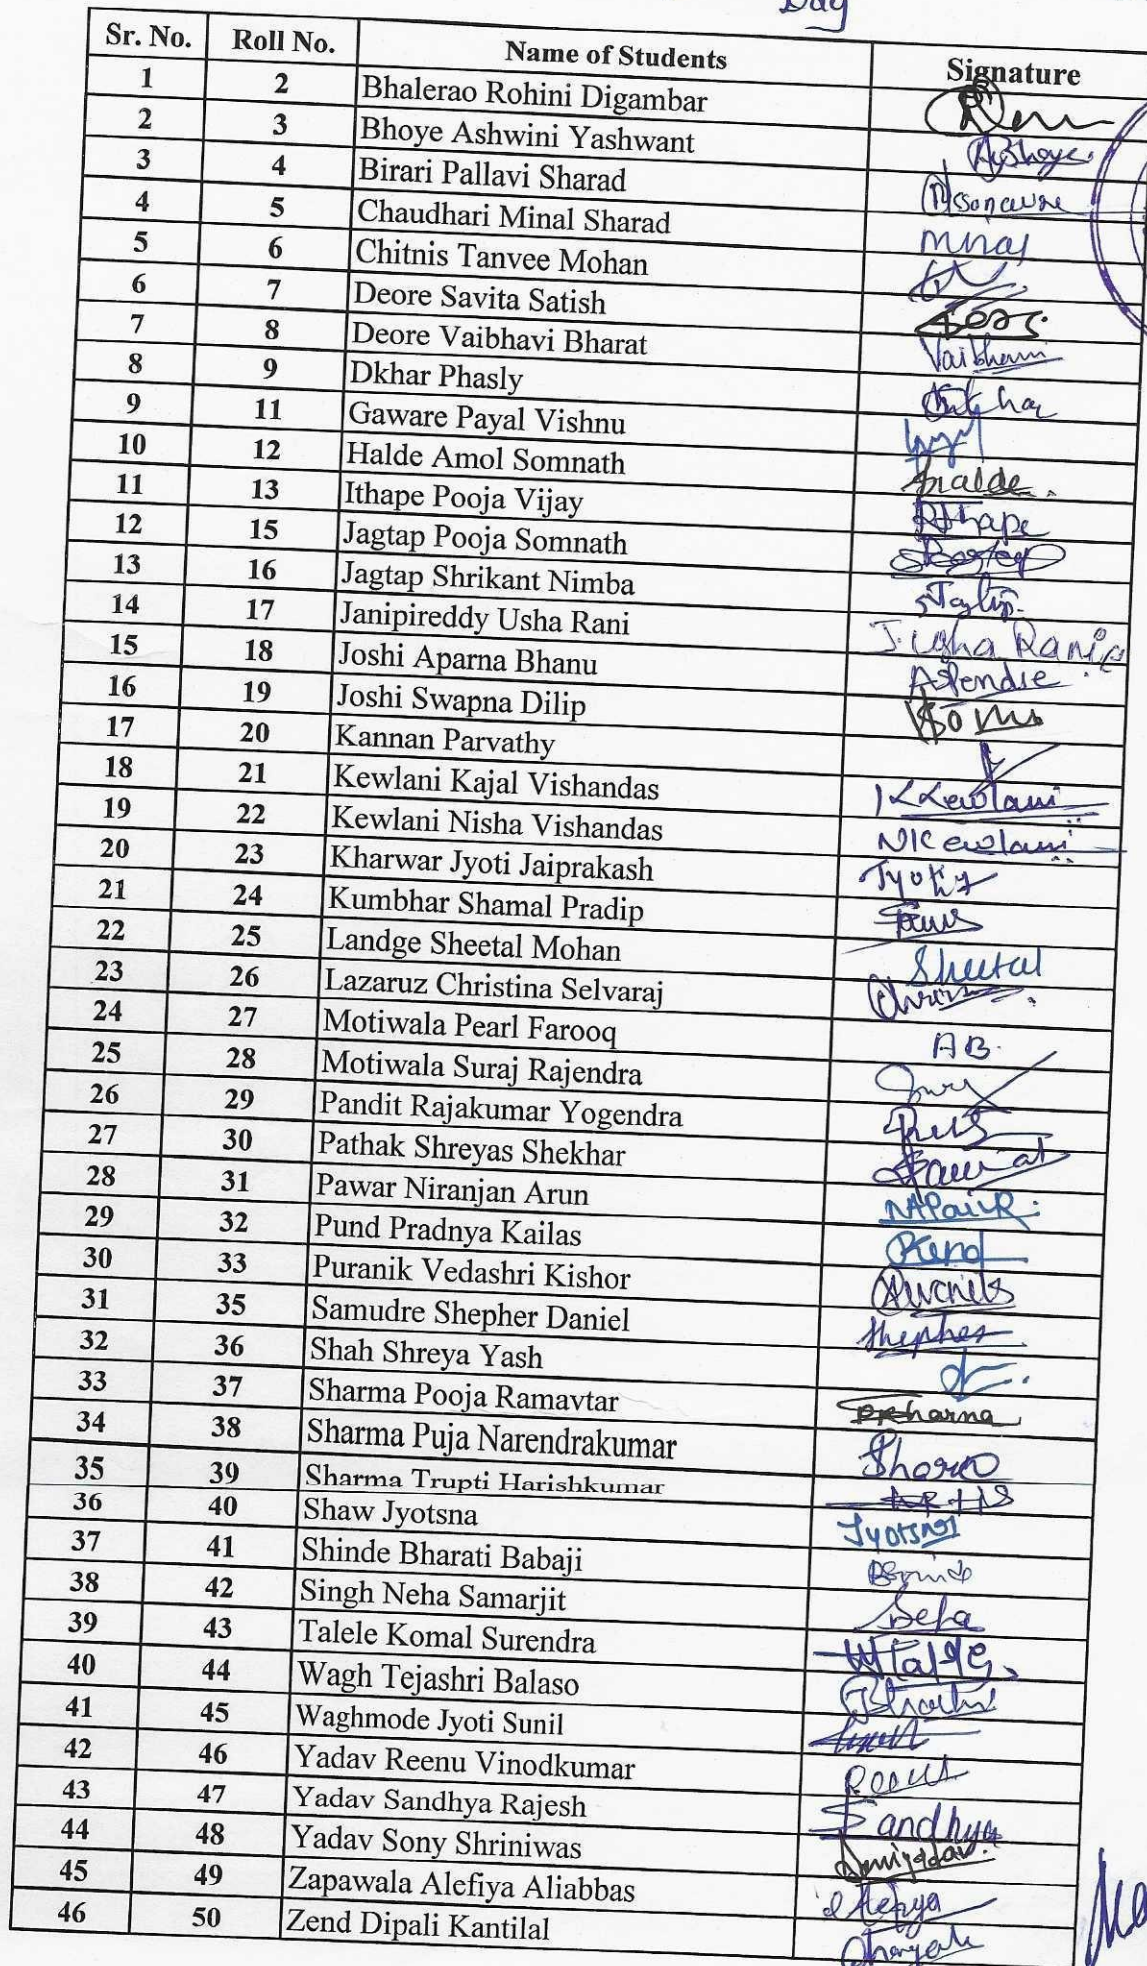 Day
Sr. No. Roll No. Name of Students Signature
1 2 Bhalerao Rohini Digambar
2 3 Bhoye Ashwini Yashwant ABhoye.
3 4 Birari Pallavi Sharad
4 5 Chaudhari Minal Sharad Minal
5 6 Chitnis Tanvee Mohan
6 7 Deore Savita Satish
7 8 Deore Vaibhavi Bharat Vaibhavi
8 9 Dkhar Phasly
9 11 Gaware Payal Vishnu
10 12 Halde Amol Somnath Halde.
11 13 Ithape Pooja Vijay PIthape
12 15 Jagtap Pooja Somnath
13 16 Jagtap Shrikant Nimba
14 17 Janipireddy Usha Rani J. Usha Rani
15 18 Joshi Aparna Bhanu APendse
16 19 Joshi Swapna Dilip
17 20 Kannan Parvathy
18 21 Kewlani Kajal Vishandas KKewlani
19 22 Kewlani Nisha Vishandas NKewlani
20 23 Kharwar Jyoti Jaiprakash Jyoti
21 24 Kumbhar Shamal Pradip
22 25 Landge Sheetal Mohan Sheetal
23 26 Lazaruz Christina Selvaraj
24 27 Motiwala Pearl Farooq AB.
25 28 Motiwala Suraj Rajendra
26 29 Pandit Rajakumar Yogendra
27 30 Pathak Shreyas Shekhar
28 31 Pawar Niranjan Arun
29 32 Pund Pradnya Kailas Pund
30 33 Puranik Vedashri Kishor
31 35 Samudre Shepher Daniel Shepher
32 36 Shah Shreya Yash
33 37 Sharma Pooja Ramavtar
34 38 Sharma Puja Narendrakumar
35 39 Sharma Trupti Harishkumar
36 40 Shaw Jyotsna Jyotsna
37 41 Shinde Bharati Babaji
38 42 Singh Neha Samarjit
39 43 Talele Komal Surendra
40 44 Wagh Tejashri Balaso
41 45 Waghmode Jyoti Sunil
42 46 Yadav Reenu Vinodkumar Reenu
43 47 Yadav Sandhya Rajesh Sandhya
44 48 Yadav Sony Shriniwas
45 49 Zapawala Alefiya Aliabbas
46 50 Zend Dipali Kantilal